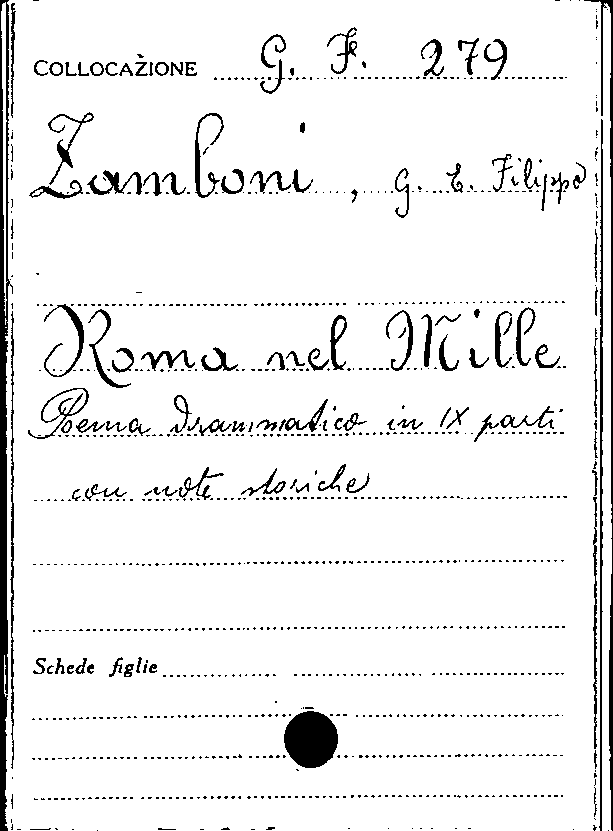 COLLOCAZIONE G. F. 279
Zamboni, G. E. Filippo
Roma nel Mille
Poema drammatico in IX parti
con note storiche
Schede figlie